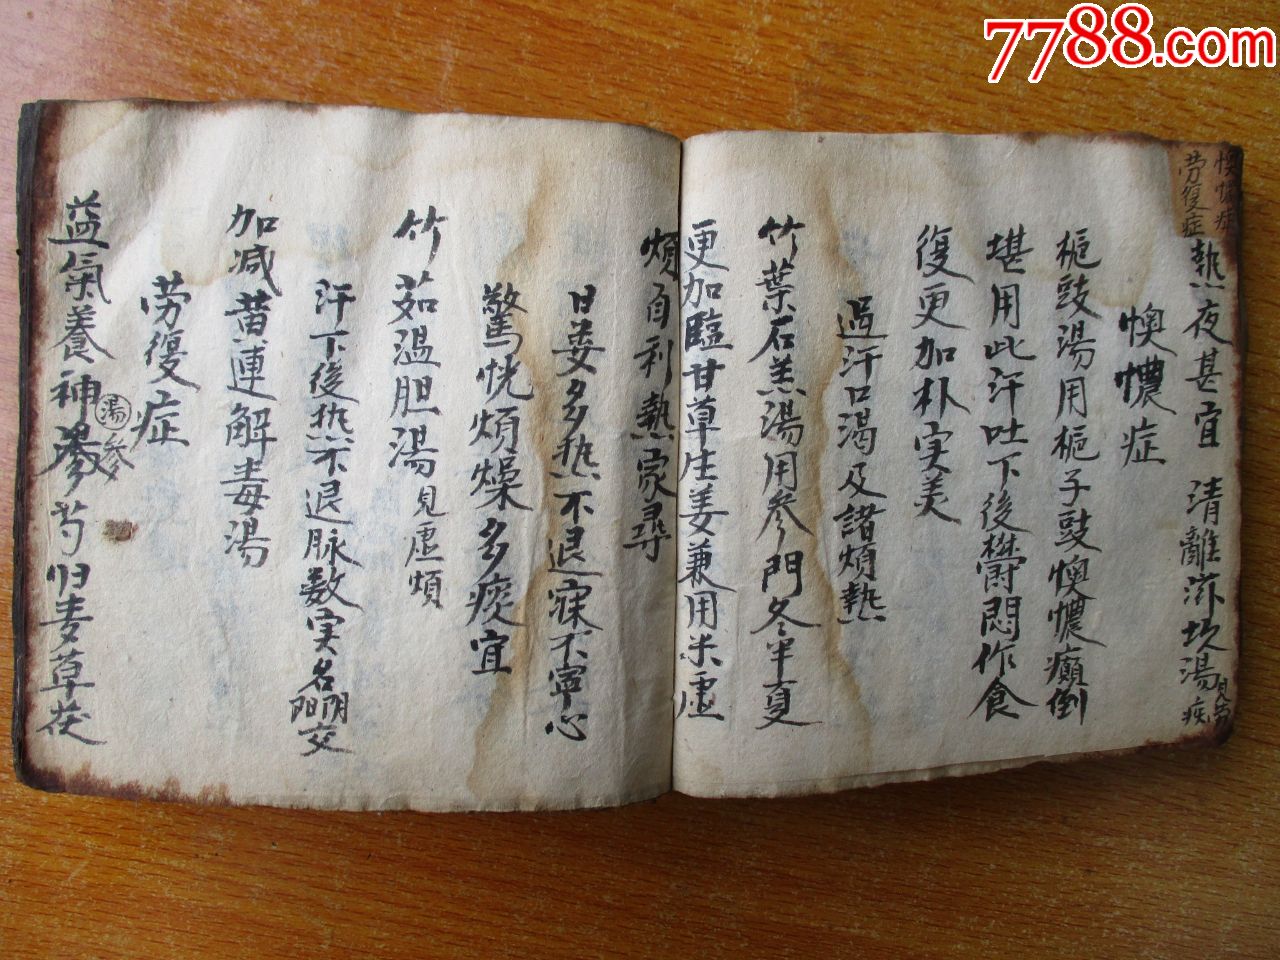 7788.com
懊憹症
劳復症
熱夜甚宜 清離滋坎湯見劳疾
懊憹症
梔豉湯用梔子豉懊憹癲倒
堪用此汗吐下後欎悶作食
復更加朴实美
過汗口渴及諸煩熱
竹葉石羔湯用參門冬半夏
更加臨甘草生姜兼用米虛
煩自利熱家尋
日晏多热不退寐不寧心
驚恍煩燥多痰宜
竹茹温胆湯見虛煩
汗下後热不退脉数实名陽明交
加减黄連解毒湯
劳復症
益氣養神湯參芍归麦草茯